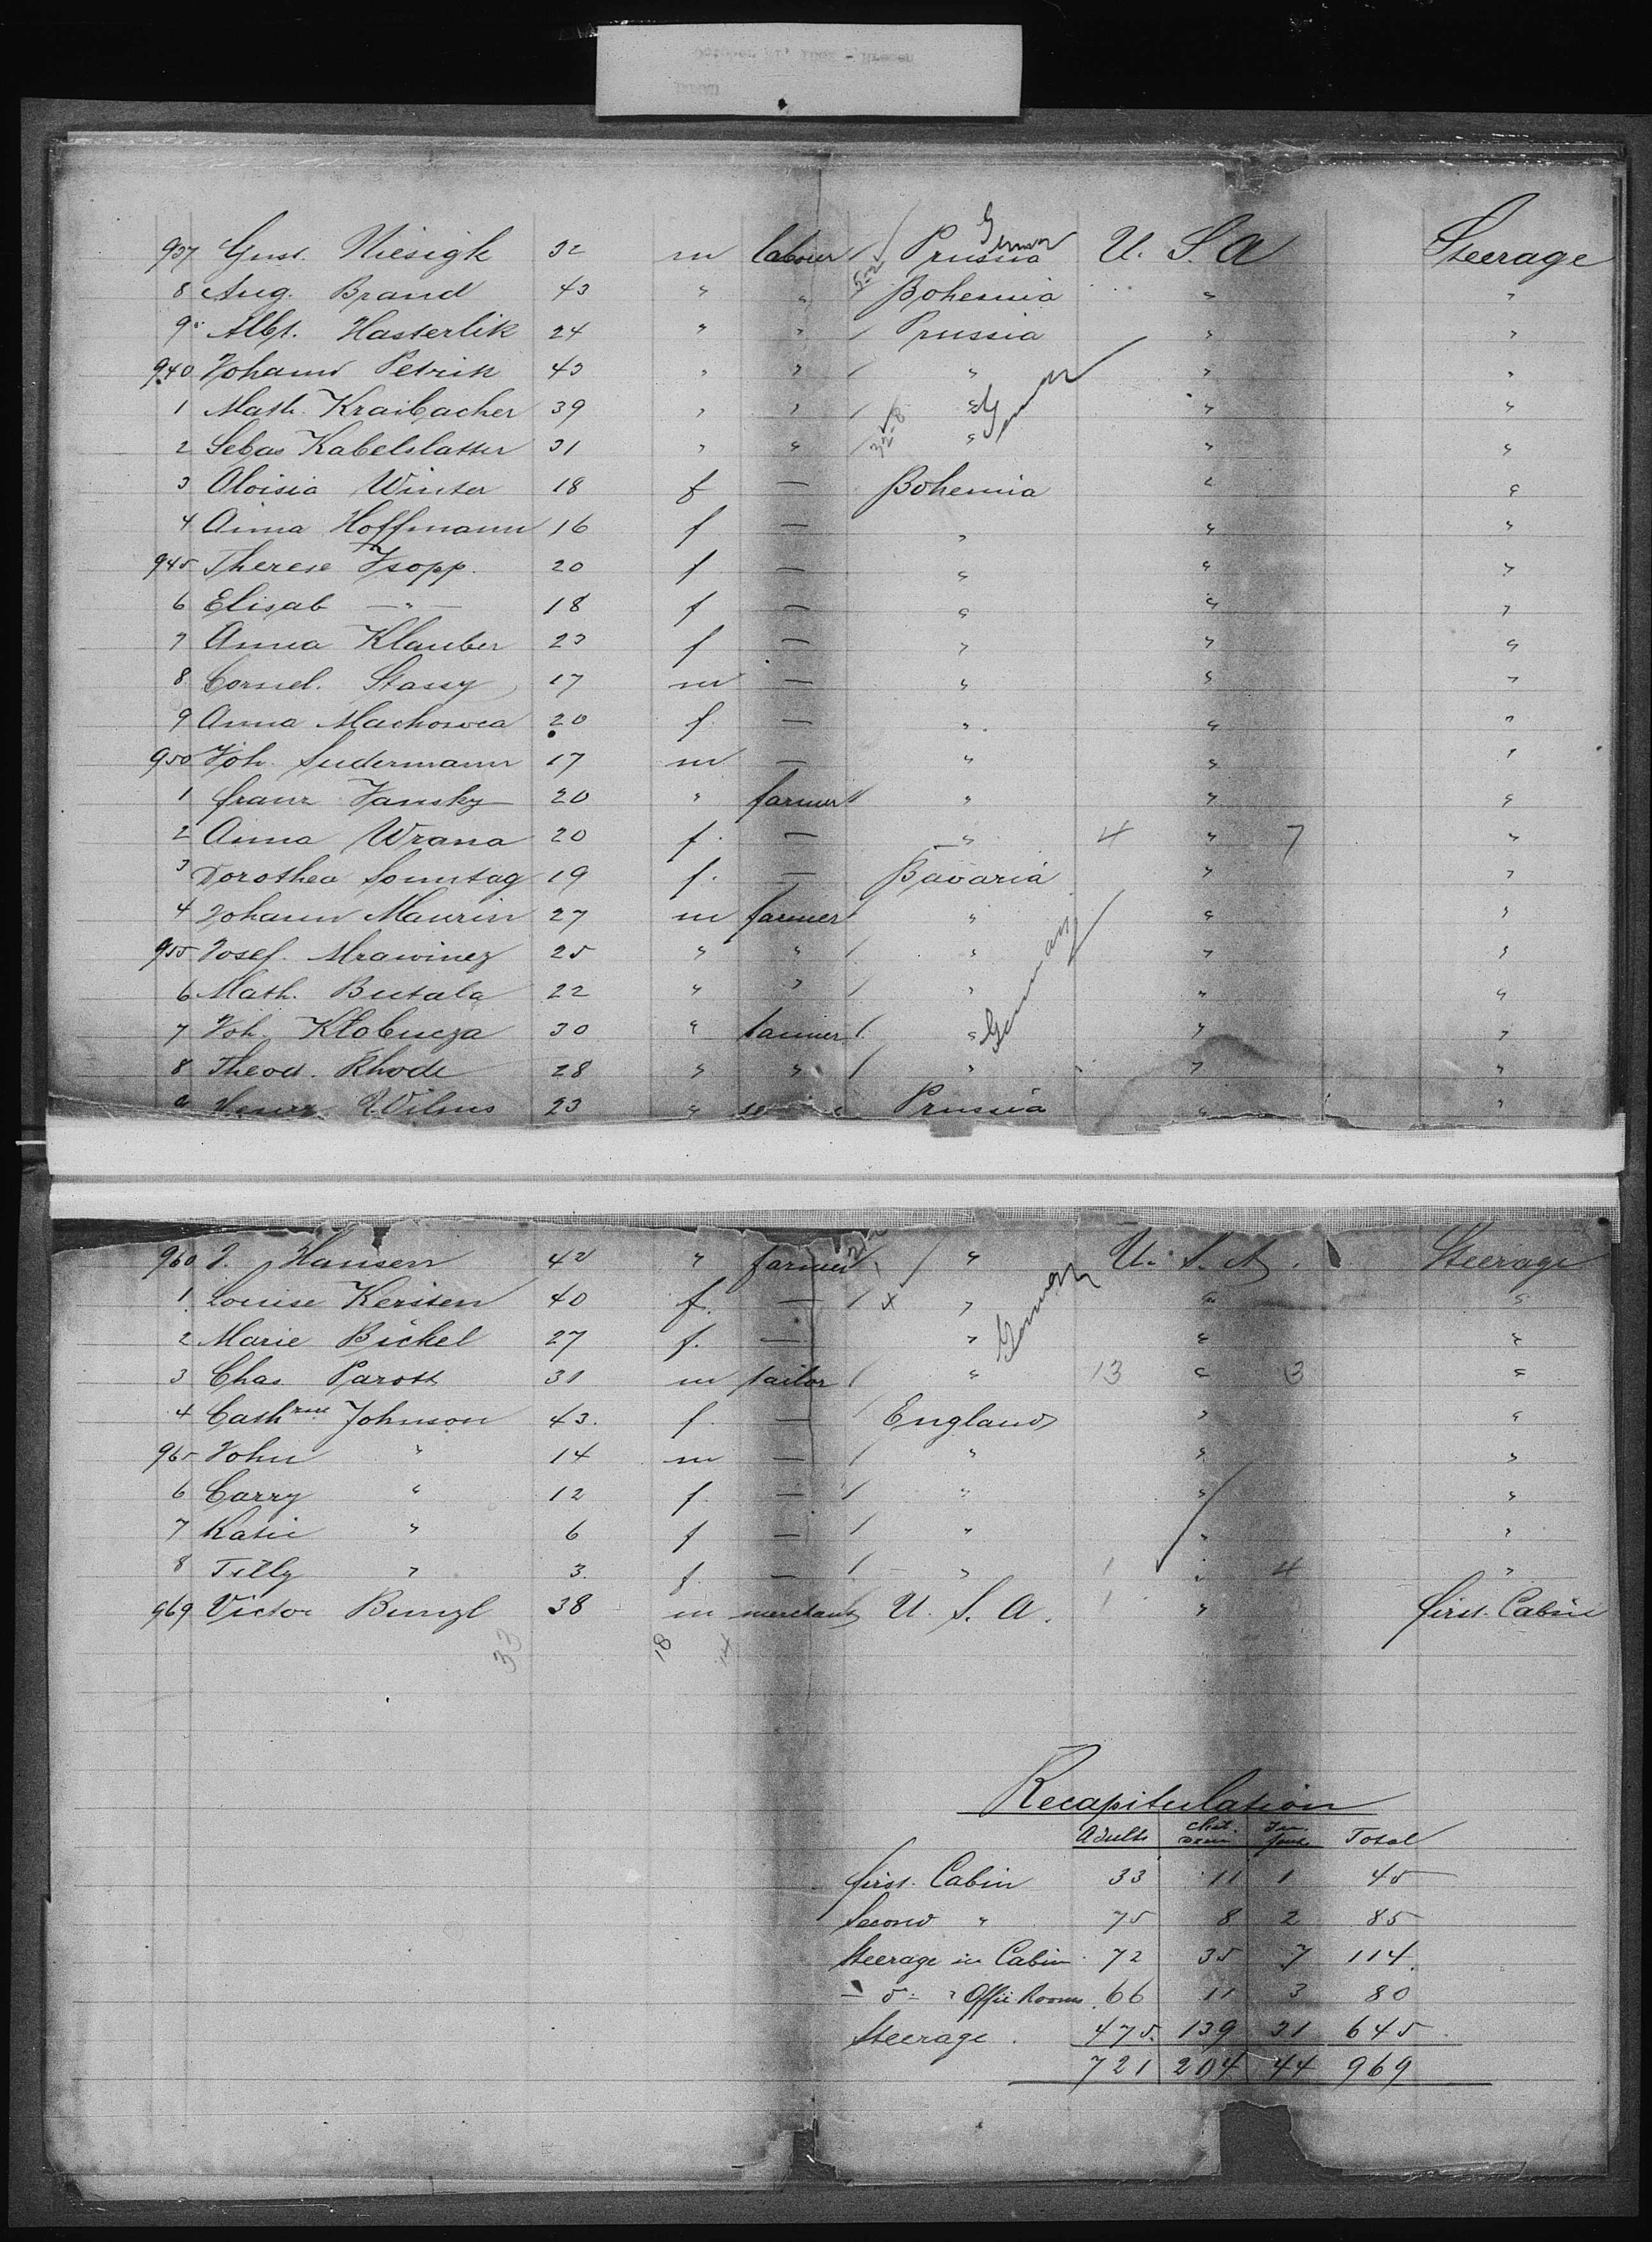 937 Gust. Niesigk 32 m labourer Prussia U. S. A Steerage
8 Aug. Brand 43 " " Bohemia " "
9 Albt. Hasterlik 24 " " Prussia " "
940 Johann Petrik 43 " " " " "
1 Math. Kraibacher 39 " " " German " "
2 Sebas Kabelslatter 31 " " " " "
3 Aloisia Winter 18 f — Bohemia " "
4 Anna Hoffmann 16 f — " " "
945 Therese Jsopp. 20 f — " " "
6 Elisab —"— 18 f — " " "
7 Anna Klauber 23 f — " " "
8 Cornel. Stassy 17 m — " " "
9 Anna Machowca 20 f — " " "
950 Joh. Sudermann 17 m — " " "
1 Franz Jansky 20 " farmer " " "
2 Anna Wrana 20 f. — " 4 " 7 "
3 Dorothea Sonntag 19 f. — Bavaria " "
4 Johann Maurin 27 m farmer " " "
955 Josef. Mrawinez 25 " " " " "
6 Math. Butala 22 " " " " "
7 Joh. Klobucza 30 " " Germany " "
8 Theod. Rhode 28 " " " " "
9 Wilms 23 " Prussia " "
960 J. Hansen 42 " farmer " U. S. A. Steerage
1 Louise Kersten 40 f. — " " "
2 Marie Bickel 27 f. — " Germany " "
3 Chas Parott 31 m tailor " 13 " 3 "
4 Cathrine Johnson 43. f. — England " "
965 John " 14 m — " " "
6 Carry " 12 f. — " " "
7 Katie " 6 f — " " "
8 Tilly " 3. f. — " 1 " 4 "
969 Victor Bunzl 38 m merchant U. S. A. 1 " First. Cabin
33 18 14
Recapitulation
Adults Children Infants Total
First. Cabin 33 11 1 45
Second " 75 8 2 85
Steerage in Cabin 72 35 7 114.
" Offic Rooms 66 11 3 80
Steerage. 475. 139 31 645
721 204 44 969